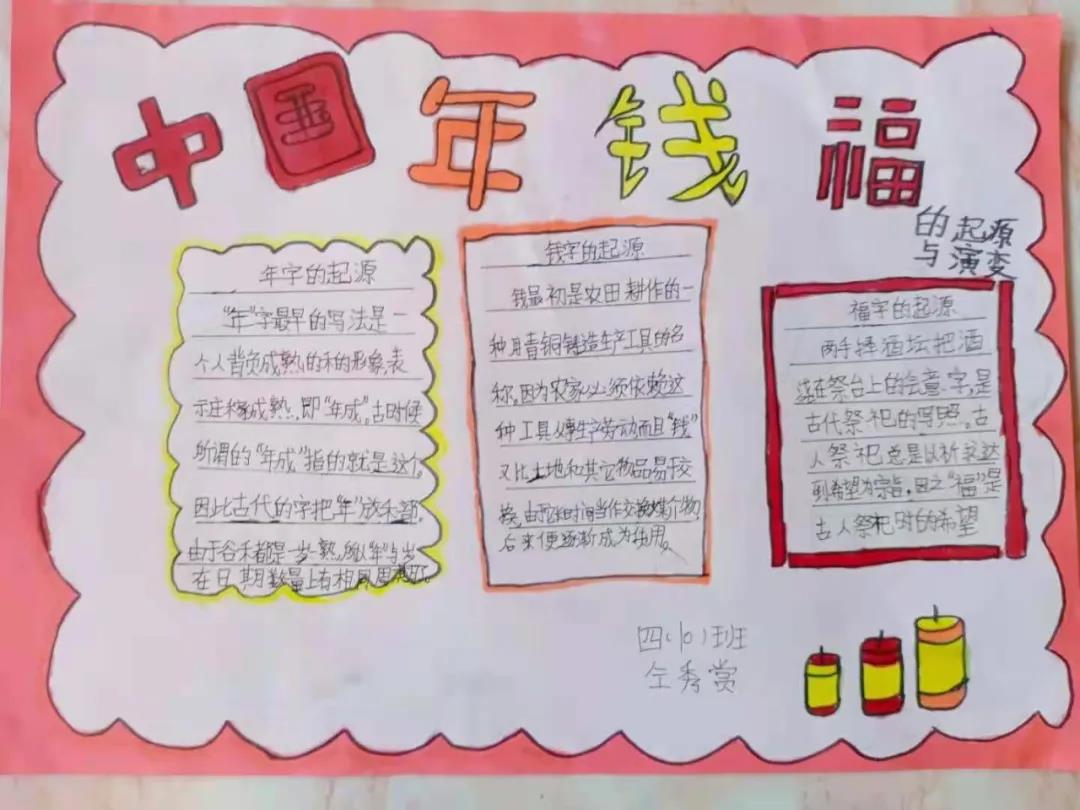 中国年钱福
的起源
与演变
年字的起源
“年”字最早的写法是一
个人背负成熟的禾的形象,表
示庄稼成熟,即“年成”。古时候
所谓的“年成”指的就是这个,
因此古代的字把“年”放禾部,
由于谷禾都是一岁一熟,所以“年”与岁
在日期数量上有相同意
钱字的起源
钱最初是农田耕作的一
种用青铜铸造生产工具的名
称,因为农家必须依赖这
种工具从事生产劳动而且“钱”
又比土地和其它物品易于交
换,由于长时间当作交换媒介物,
后来便逐渐成为使用。
福字的起源
两手捧酒坛把酒
浇在祭台上的会意字,是
古代祭祀的写照。古
人祭祀总是以祈求达
到希望为宗旨,因之“福”是
古人祭祀时的希望
四(10)班
仝秀赏